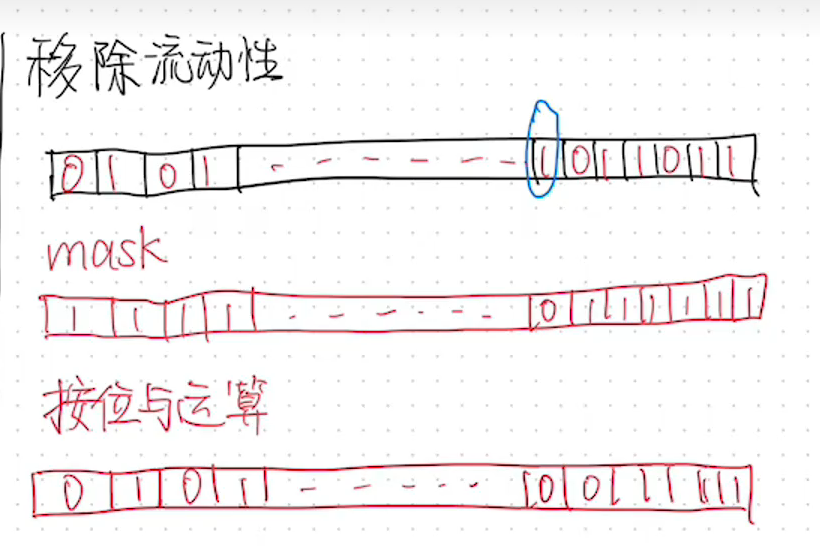 移除流动性
0 1 0 1 - - - - - - 1 0 1 1 0 1 1
mask
1 1 1 1 - - - - - - 0 1 1 1 1 1 1
按位与运算
0 1 0 1 - - - - - 0 0 1 1